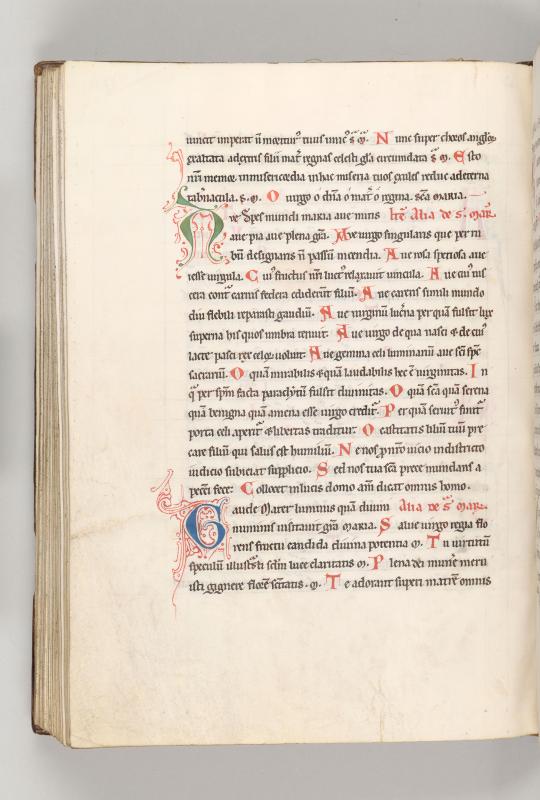 N unc super choros anglor
exaltata
celesti gla circumdata s m. E sto
memor in hac miseria tuos exules reduc ad eterna
tabnacula. s. m. O uirgo o dna o mat o regina. sca maria.
A ue spes mundi maria aue mitis Alia de s. mar.
aue pia aue plena gra. A ue uirgo singularis que per ru
bu designaris n passu incendia. A ue rosa speciosa aue
iesse uirgula. C ui fructus nri luct relaxauit uincula. A ue cui uis
cera cont carnis federa ediderunt filiu. A ue carens simili mundo
diu flebili reparasti gaudiu. A ue uirginu luc na per qua fulsit lux
superna his quos umbra tenuit. A ue uirgo de qua nasci & de cui
lacte pasci rex celor uoluit. A ue gemma celi luminariu aue sci spc
sacrariu. O qua mirabilis & qua laudabilis hec e uirginitas. I n
q per spm facta paraclytu fulsit diuinitas. O qua sca qua serena
qua benigna qua amena esse uirgo credit. P er qua seruit finit
porta celi aperit & libertas traditur. O castitatis liliu tuu pre
care filiu qui salus est humiliu. N e nos p nro uicio in districto
iudicio subiciat supplicio. S ed nos tua sca prece mundans a
pecci fece: C ollocet in lucis domo am dicat omnis homo.
G aude Mater luminis qua diuini Alia de s mar.
numinis uisitauit gra maria. S alue uirgo regia flo
rens fructu candida diuina potentia m. T u uirtutu
speculu luce claritatis m. P lena dei mun e meru
isti gignere flore scitatis. m. T e adorant superi matre omnis